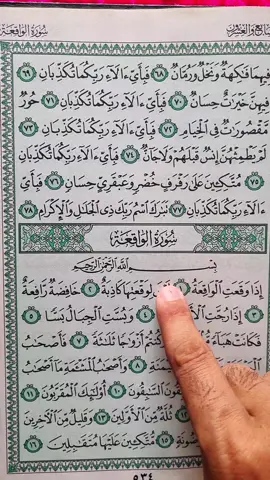 سُورَةُ الوَاقِعَةِ
فِيهِمَا فَاكِهَةٌ وَنَخْلٌ وَرُمَّانٌ ٦٨ فَبِأَيِّ ءَالَاءِ رَبِّكُمَا تُكَذِّبَانِ ٦٩
فِيهِنَّ خَيْرَاتٌ حِسَانٌ ٧٠ فَبِأَيِّ ءَالَاءِ رَبِّكُمَا تُكَذِّبَانِ ٧١ حُورٌ
مَّقْصُورَاتٌ فِي الْخِيَامِ ٧٢ فَبِأَيِّ ءَالَاءِ رَبِّكُمَا تُكَذِّبَانِ ٧٣
لَمْ يَطْمِثْهُنَّ إِنسٌ قَبْلَهُمْ وَلَا جَانٌّ ٧٤ فَبِأَيِّ ءَالَاءِ رَبِّكُمَا تُكَذِّبَانِ
٧٥ مُتَّكِئِينَ عَلَى رَفْرَفٍ خُضْرٍ وَعَبْقَرِيٍّ حِسَانٍ ٧٦ فَبِأَيِّ
ءَالَاءِ رَبِّكُمَا تُكَذِّبَانِ ٧٧ تَبَارَكَ اسْمُ رَبِّكَ ذِي الْجَلَالِ وَالْإِكْرَامِ ٧٨
سُورَةُ الوَاقِعَةِ
بِسْمِ اللَّهِ الرَّحْمَٰنِ الرَّحِيمِ
إِذَا وَقَعَتِ الْوَاقِعَةُ لِوَقْعَتِهَا كَاذِبَةٌ ٢ خَافِضَةٌ رَّافِعَةٌ
٣ إِذَا رُجَّتِ ٤ وَبُسَّتِ الْجِبَالُ بَسًّا ٥
فَكَانَتْ هَبَاءً وَكُنتُمْ أَزْوَاجًا ثَلَاثَةً ٧ فَأَصْحَابُ
٨ وَأَصْحَابُ الْمَشْأَمَةِ مَا أَصْحَابُ
السَّابِقُونَ ١٠ أُولَٰئِكَ الْمُقَرَّبُونَ ١١
ثُلَّةٌ مِّنَ الْأَوَّلِينَ ١٣ وَقَلِيلٌ مِّنَ الْآخِرِينَ
١٥ مُّتَّكِئِينَ عَلَيْهَا مُتَقَابِلِينَ ١٦
٥٣٤